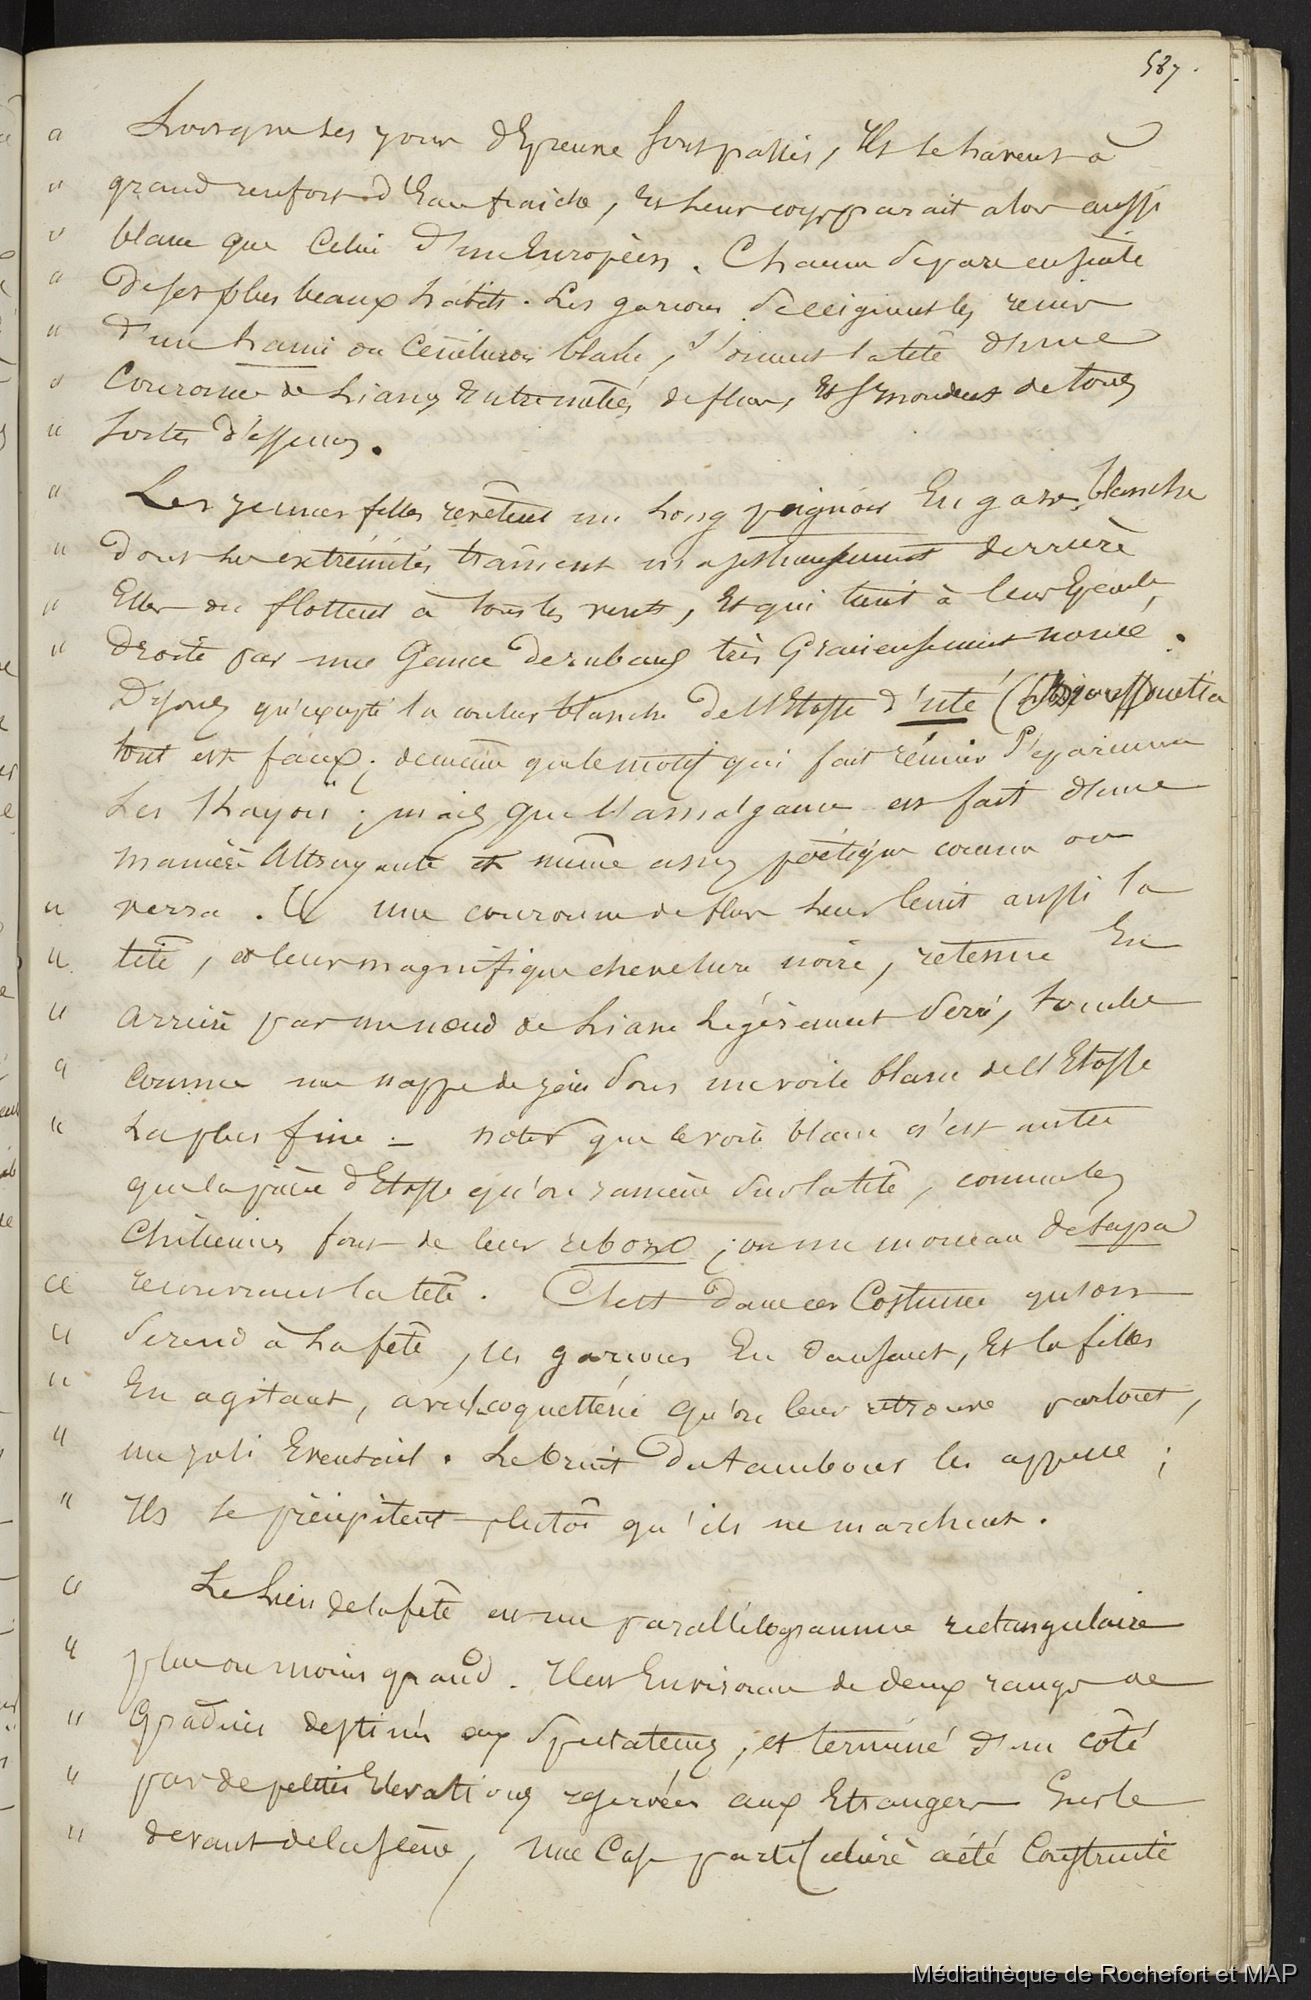 587.
" Lorsque les jours d'Epreuve sont passés, Ils se lavent à
" grand renfort d'Eau fraiche, et leur corps parait alors aussi
" blanc que celui d'un Européen. Chacun se pare ensuite
" de ses plus beaux habits. Les garçons se ceignent les reins
" d'un hami ou ceinturon blanc, s'ornent la tête d'une
" Couronne de Lianes Entremêlées de fleurs, et s'inondent de toutes
" sortes d'essences.
" Les jeunes filles revêtent un long peignoir En gaze blanche
" dont les extrémités trainent majestueusement derrière
" Elles ou flottent à tous les vents, Et qui tient à leur Epaule
" droite par une Gance de rubans très Gracieusement nouée.
Disons qu'excepté la couleur blanche de l'Etoffe d'uté
tout est faux; de même que le motif qui fait réunir
Les Kayoïs"; mais que l'amalgame est fait d'une
manière Attrayante et même assez poëtique comme on
" verra. " une couronne de fleurs leur ceint aussi la
" tête, et leur magnifique chevelure noire, retenue En
" arrière par un nœud de Liane Légèrement serré, tombe
" comme une nappe de jais sous un voile blanc de l'Etoffe
" La plus fine — noter que le voile blanc n'est autre
que la pièce d'Etoffe qu'on ramène sur la tête, comme les
Chiliennes font de leur rebozo; ou un morceau de tapa
" recouvrant la tête. C'est dans ces Costumes qu'on
" se rend à La fête, les garçons En dansant, Et les filles
" En agitant, avec la coquetterie qu'on leur retrouve partout,
" un joli Eventail. Le bruit du tambour les appelle;
" Ils se précipitent plutôt qu'ils ne marchent.
" Le Lieu de la fête est un parallélogramme rectangulaire
" plus ou moins grand. Il est Environné de deux rangs de
" Gradins destinés aux Spectateurs, et terminé d'un côté
" par de petites Elevations reservées aux Etrangers Sur le
" devant de la scène, une Case particulière a été Construite
Médiathèque de Rochefort et MAP